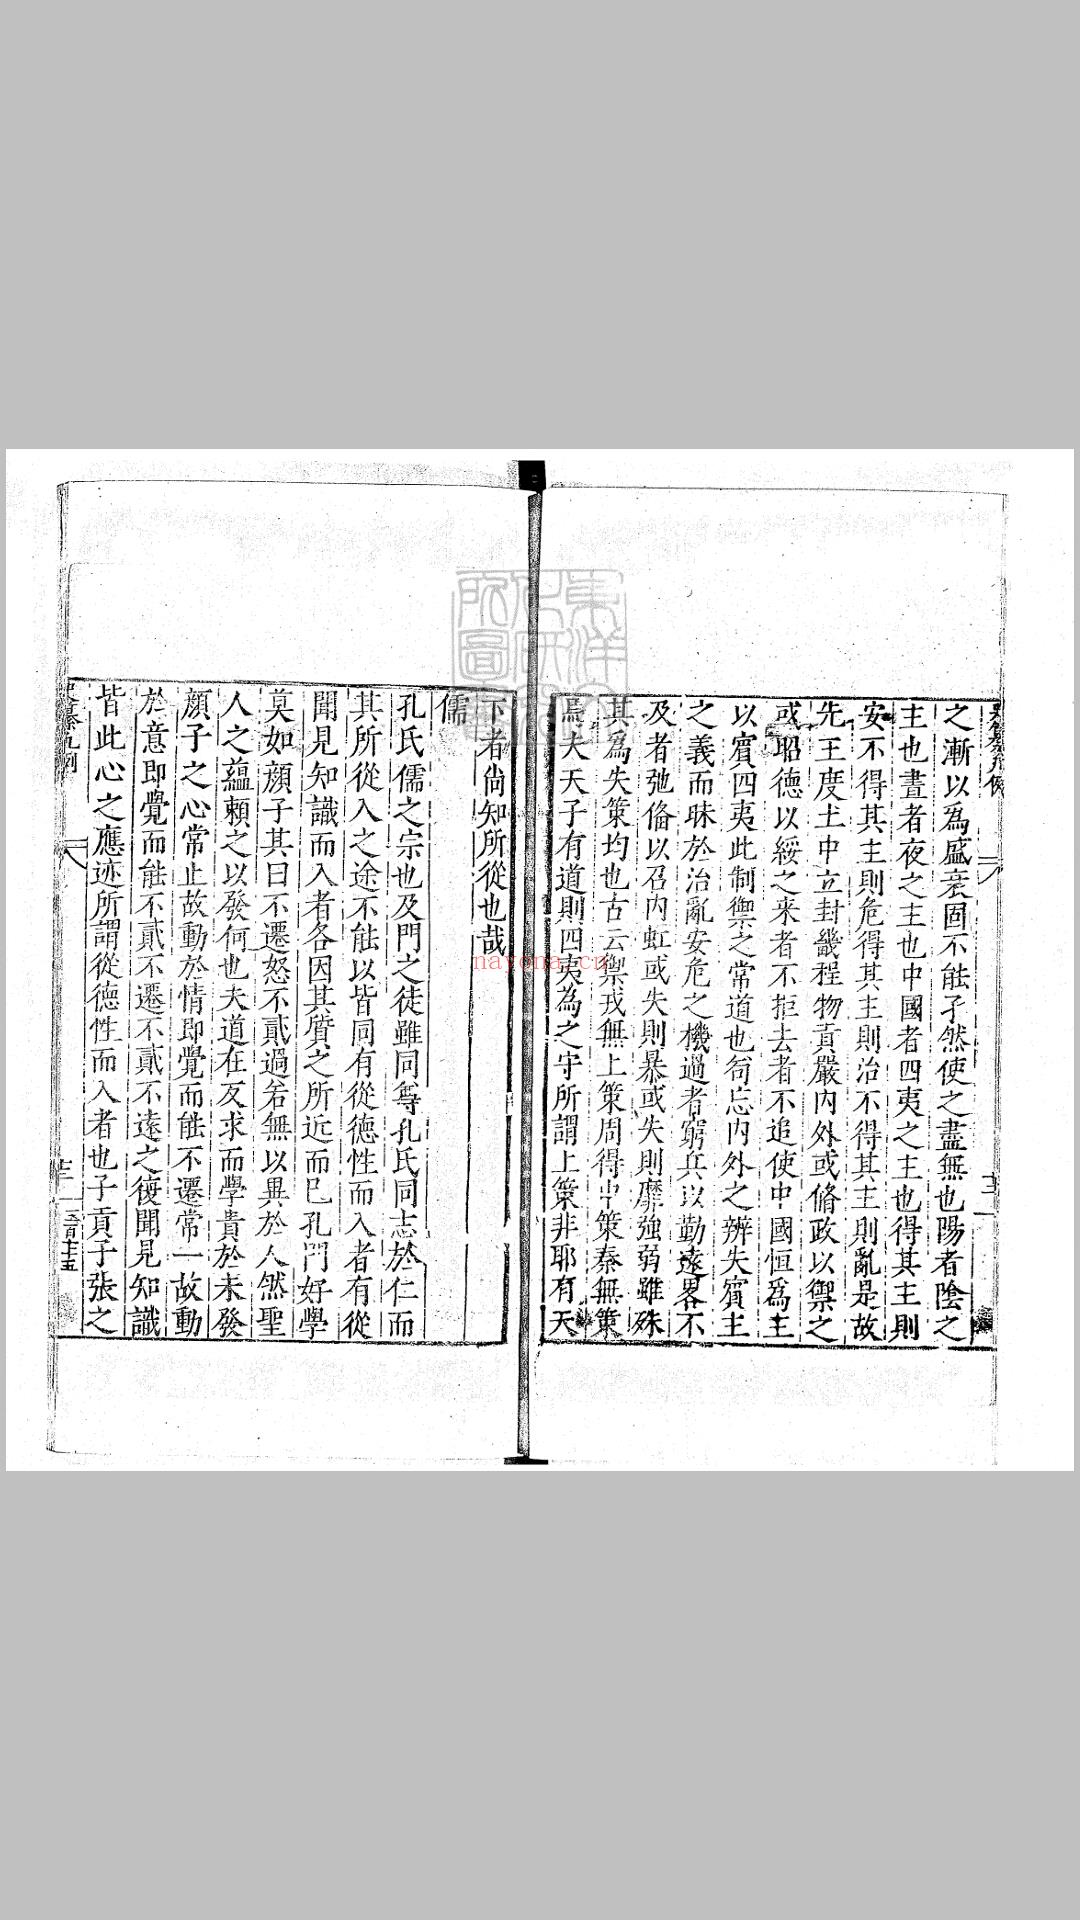 之漸以為盛衰固不能孑然使之盡無也陽者陰之
主也晝者夜之主也中國者四夷之主也得其主則
安不得其主則危得其主則治不得其主則亂是故
先王度土中立封畿程物貢嚴內外或脩政以禦之
或昭德以綏之来者不拒去者不追使中國恒為主
以賓四夷此制禦之常道也苟忘內外之辨失賓主
之義而昧於治亂安危之機過者窮兵以勤遠畧不
及者弛俻以召內虹或失則暴或失則靡強弱雖殊
其為失策均也古云禦戎無上策周得中策秦無策
焉夫天子有道則四夷為之守所謂上策非耶有天
下者尙知所從也哉
儒
孔氏儒之宗也及門之徒雖同尊孔氏同志於仁而
其所從入之途不能以皆同有從德性而入者有從
聞見知識而入者各因其質之所近而已孔門好學
莫如顔子其曰不遷怒不貳過若無以異於人然聖
人之蘊賴之以發何也夫道在反求而學貴於未發
顔子之心常止故動於情即覺而能不遷常一故動
於意即覺而能不貳不遷不貳不遠之復聞見知識
皆此心之應迹所謂從德性而入者也子貢子張之
nayona.cn